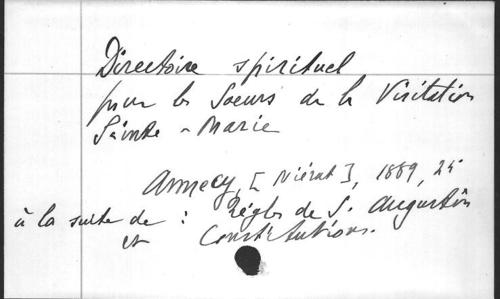 Directoire spirituel
pour les Soeurs de la Visitation
Sainte-Marie
Annecy, [Niérat], 1889, 25
à la suite de : Règles de S. Augustin
et Constitutions.